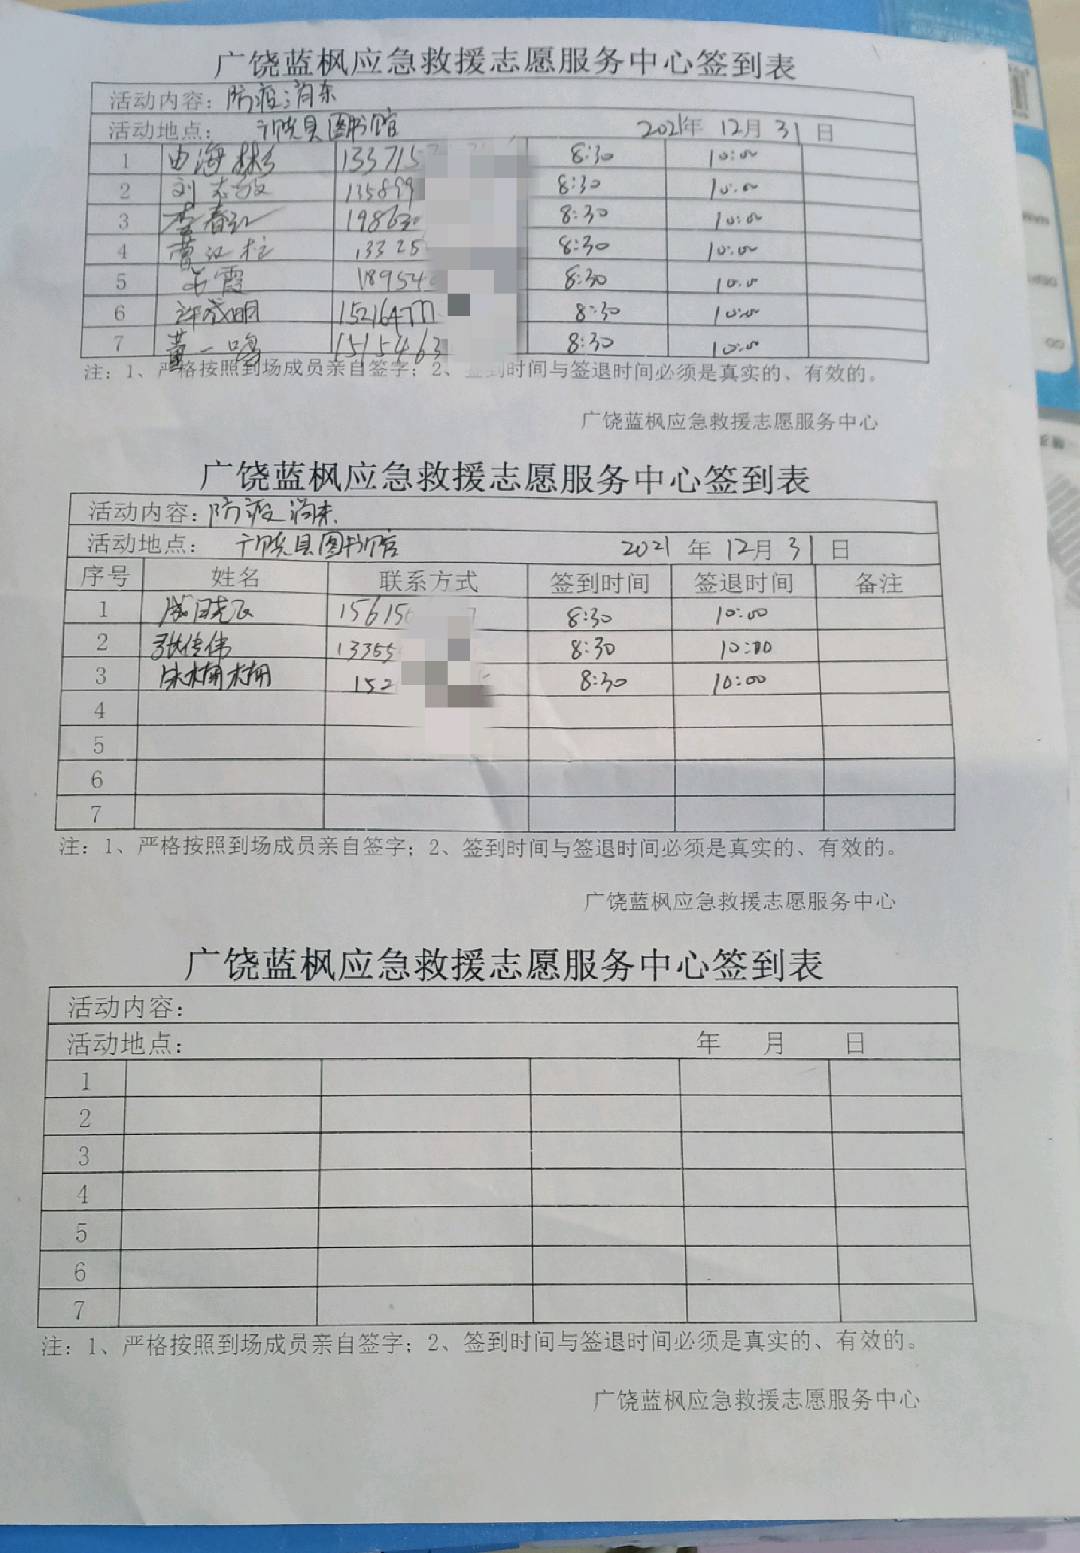 广饶蓝枫应急救援志愿服务中心签到表
活动内容：防疫消杀
活动地点：广饶县图书馆 2021年 12月 31日
1 由海彬 133715 8:30 10:00
2 刘志敏 135899 8:30 10:00
3 李春江 19863 8:30 10:00
4 黄江柱 13325 8:30 10:00
5 霞 18954 8:30 10:00
6 许成明 15216477 8:30 10:00
7 黄一鸣 1515463 8:30 10:00
注：1、严格按照到场成员亲自签字；2、签到时间与签退时间必须是真实的、有效的。
广饶蓝枫应急救援志愿服务中心
广饶蓝枫应急救援志愿服务中心签到表
活动内容：防疫消杀
活动地点：广饶县图书馆 2021 年 12月 31 日
序号 姓名 联系方式 签到时间 签退时间 备注
1 15615 8:30 10:00
2 张传伟 13355 8:30 10:00
3 朱楠楠 152 8:30 10:00
4
5
6
7
注：1、严格按照到场成员亲自签字；2、签到时间与签退时间必须是真实的、有效的。
广饶蓝枫应急救援志愿服务中心
广饶蓝枫应急救援志愿服务中心签到表
活动内容：
活动地点： 年 月 日
1
2
3
4
5
6
7
注：1、严格按照到场成员亲自签字；2、签到时间与签退时间必须是真实的、有效的。
广饶蓝枫应急救援志愿服务中心